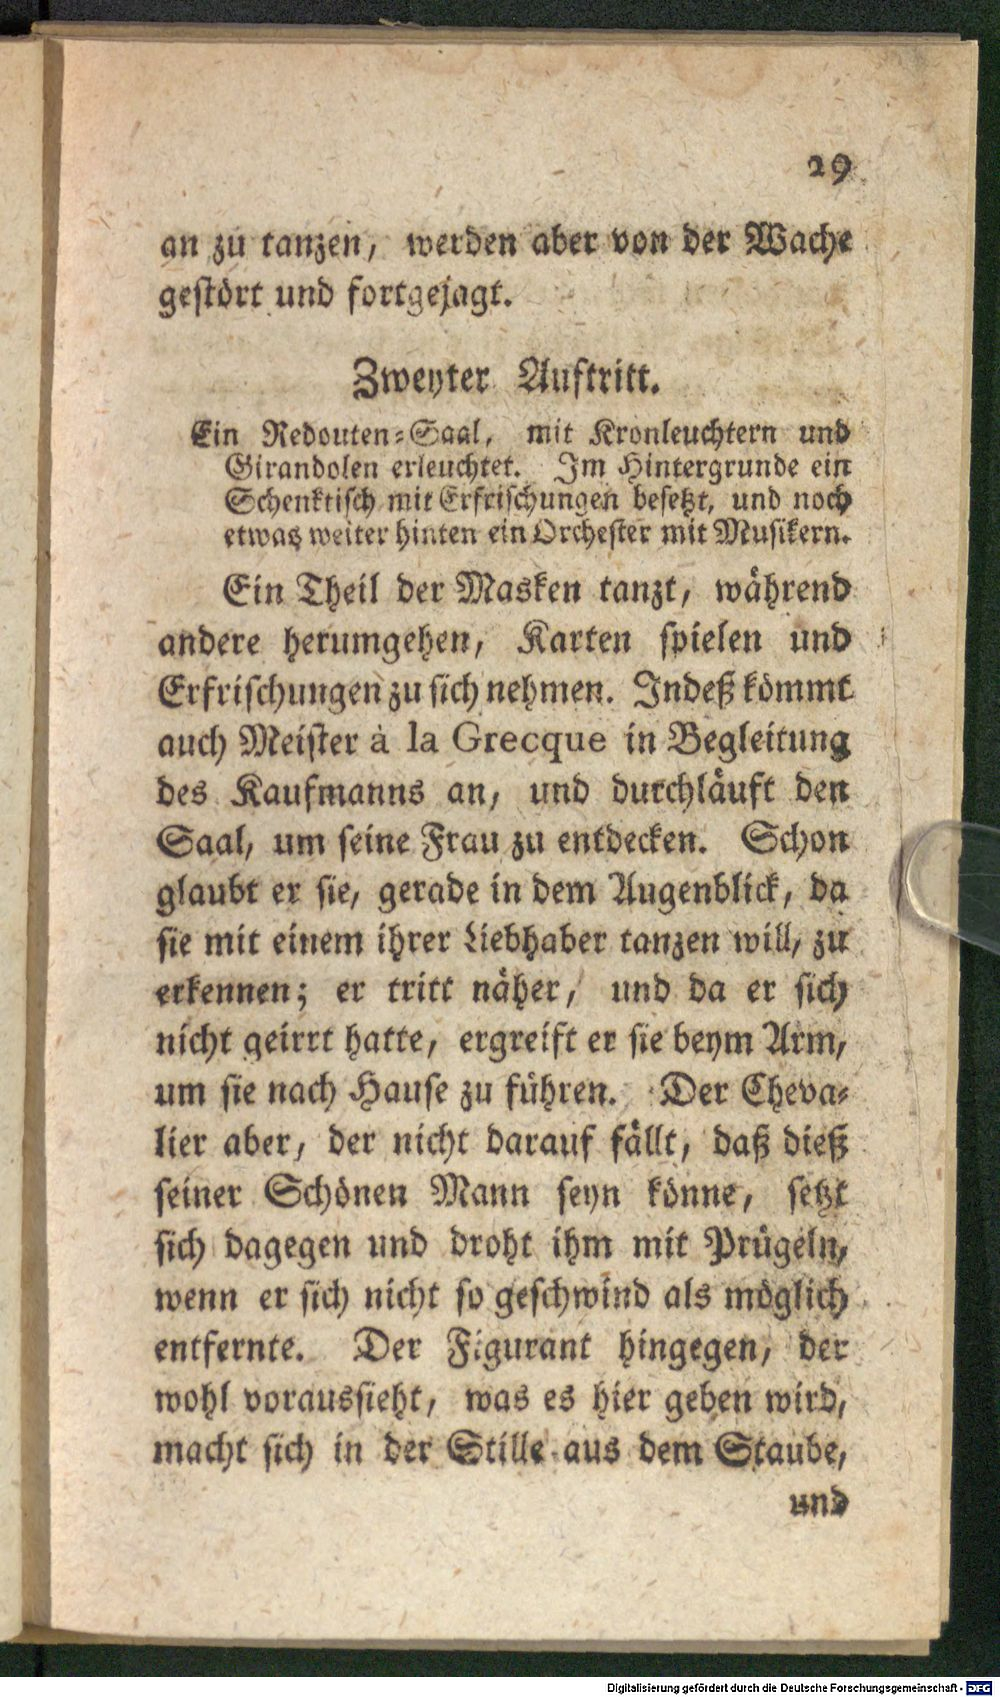 29
an zu tanzen, werden aber von der Wache
gestört und fortgejagt.
Zweyter Auftritt.
Ein Redouten-Saal, mit Kronleuchtern und
Girandolen erleuchtet. Im Hintergrunde ein
Schenktisch mit Erfrischungen besetzt, und noch
etwas weiter hinten ein Orchester mit Musikern.
Ein Theil der Masken tanzt, während
andere herumgehen, Karten spielen und
Erfrischungen zu sich nehmen. Indeß kömmt
auch Meister à la Grecque in Begleitung
des Kaufmanns an, und durchläuft den
Saal, um seine Frau zu entdecken. Schon
glaubt er sie, gerade in dem Augenblick, da
sie mit einem ihrer Liebhaber tanzen will, zu
erkennen; er tritt näher, und da er sich
nicht geirrt hatte, ergreift er sie beym Arm,
um sie nach Hause zu führen. Der Cheva-
lier aber, der nicht darauf fällt, daß dieß
seiner Schönen Mann seyn könne, setzt
sich dagegen und droht ihm mit Prügeln,
wenn er sich nicht so geschwind als möglich
entfernte. Der Figurant hingegen, der
wohl voraussieht, was es hier geben wird,
macht sich in der Stille aus dem Staube,
und
Digitalisierung gefördert durch die Deutsche Forschungsgemeinschaft - DFG